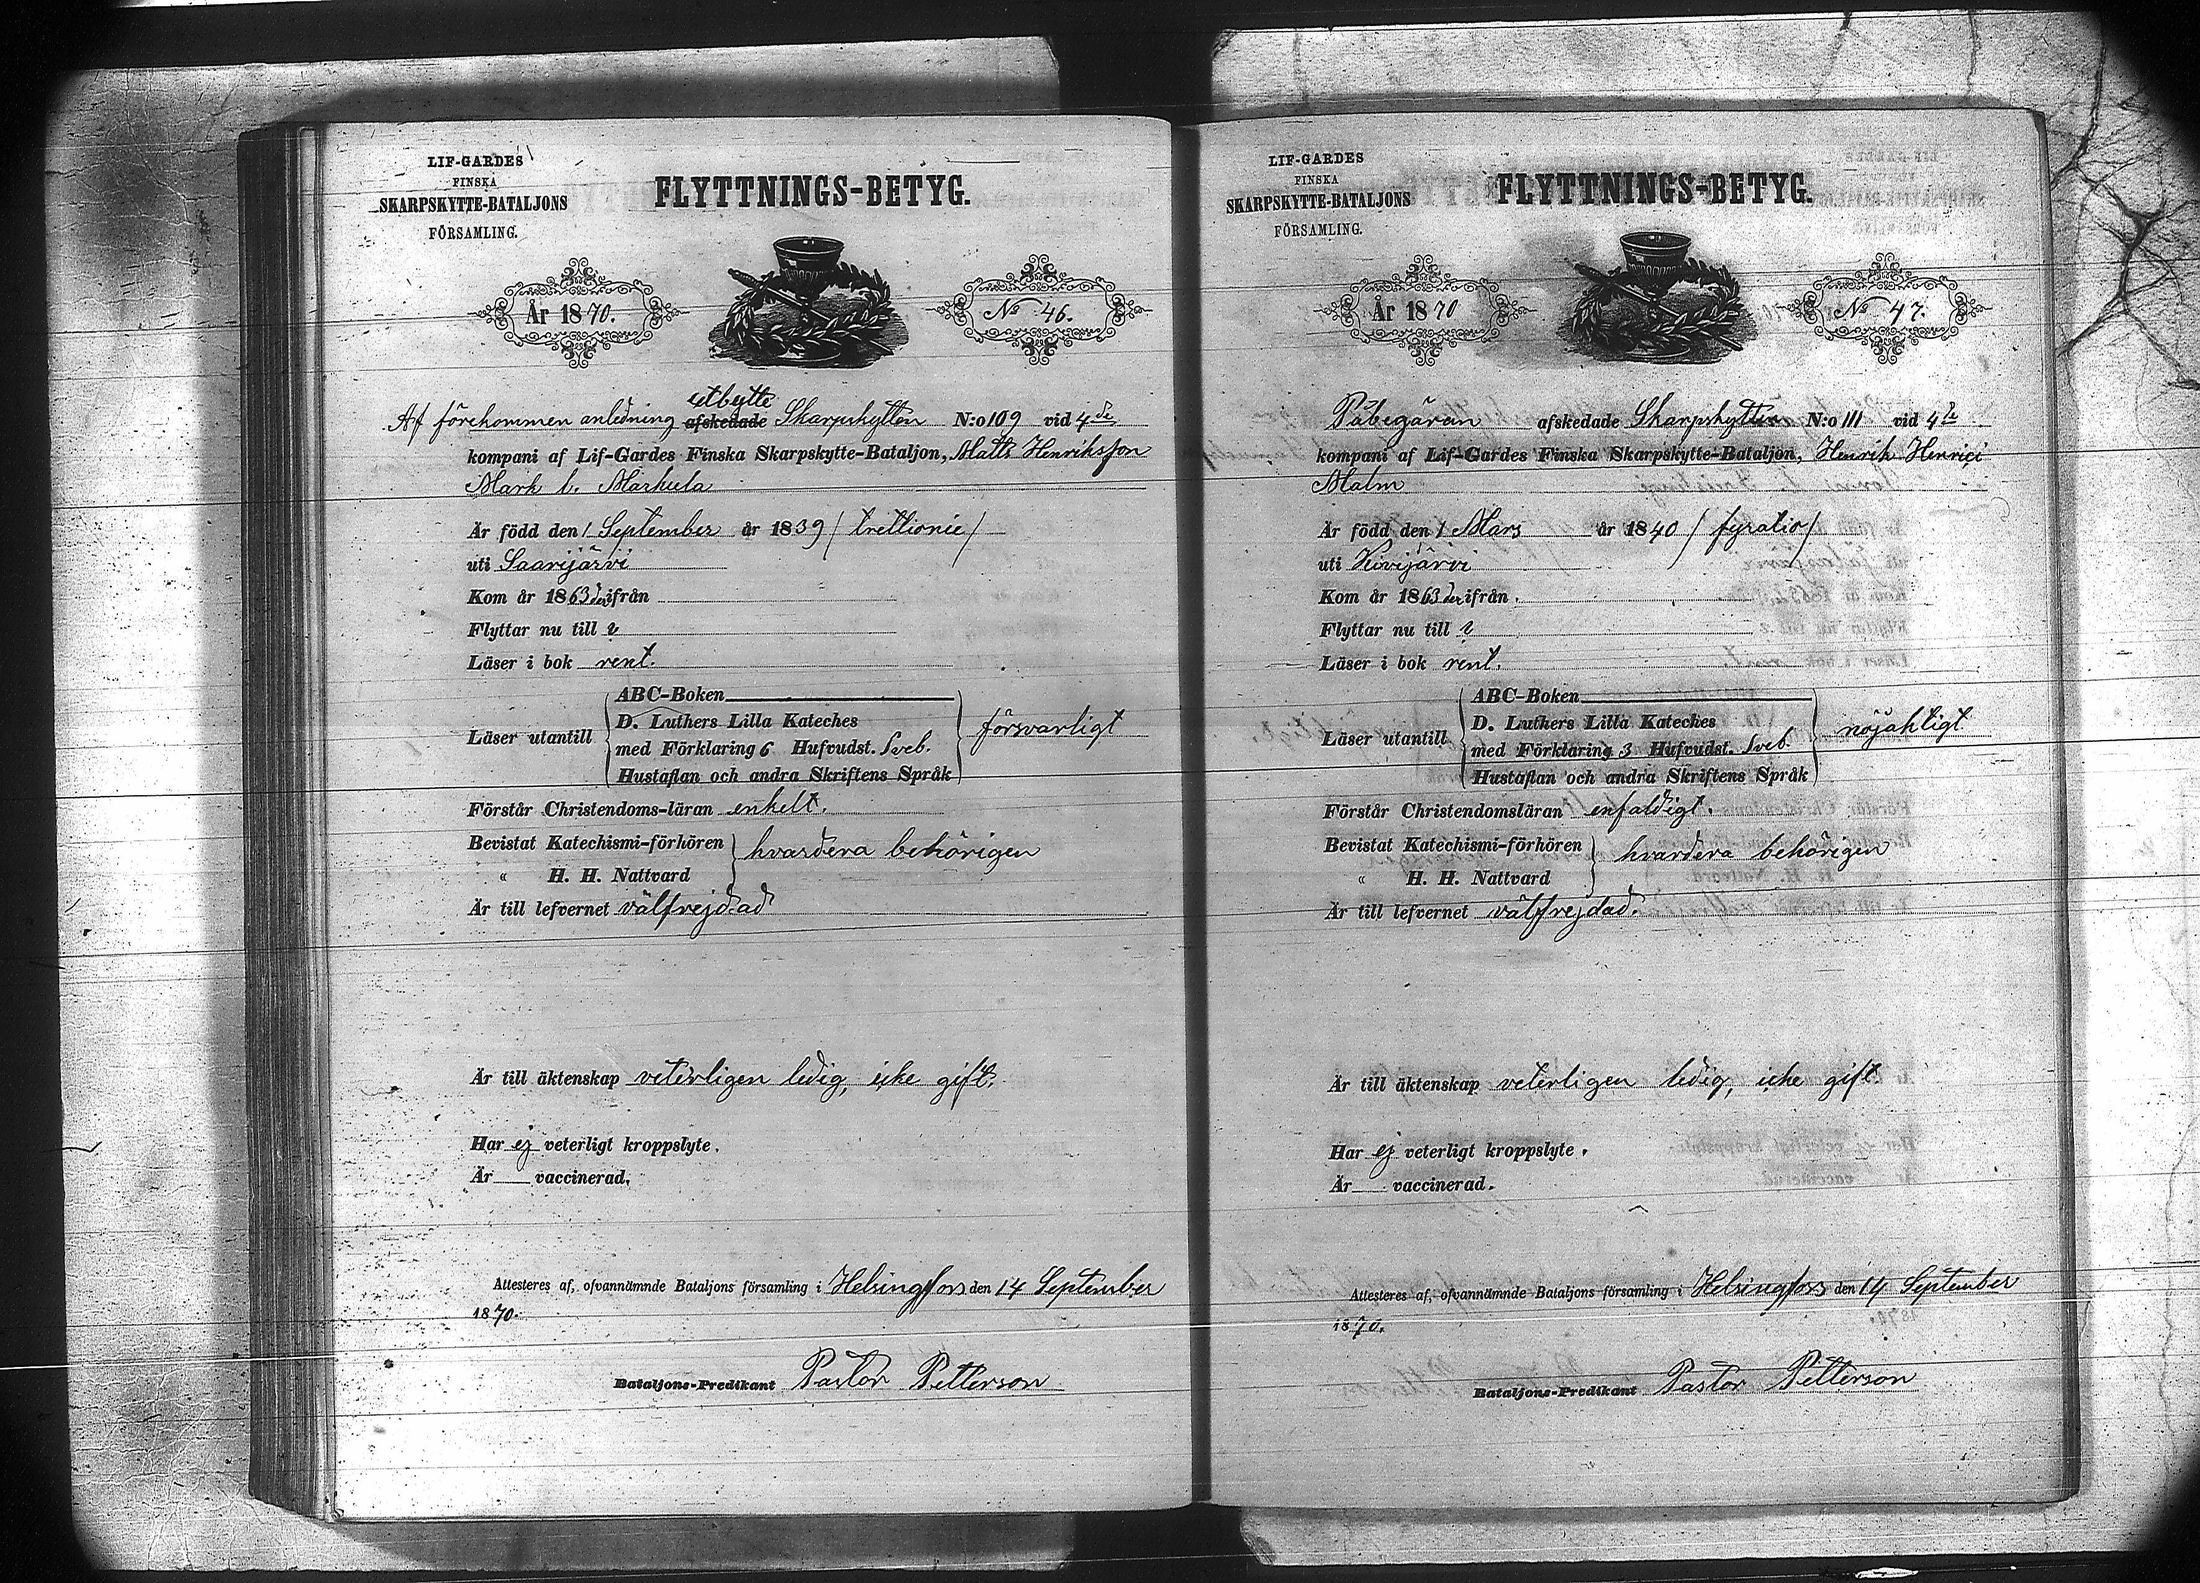 LIF-GARDES
FINSKA
SKARPSKYTTE-BATALJONS
FÖRSAMLING.
FLYTTNINGS-BETYG.
År 1870.
No 46.
utbytte
Af förekommen anledning afskedade Skarpskytten N:o 109 vid 4de
kompani af Lif-Gardes Finska Skarpskytte-Bataljon, Matts Henriksson
Mark l. Markula
Är född den 1 September år 1839 / trettionie /
uti Saarijärvi
Kom år 1863 ifrån
Flyttar nu till
Läser i bok rent.
Läser utantill
ABC-Boken
D. Luthers Lilla Kateches
med Förklaring 6 Hufvudst. Sveb.
Hustaflan och andra Skriftens Språk
försvarligt
Förstår Christendoms-läran enkelt.
Bevistat Katechismi-förhören
« H. H. Nattvard
hvardera behörigen
Är till lefvernet välfrejdad
Är till äktenskap veterligen ledig, icke gift.
Har ej veterligt kroppslyte.
Är vaccinerad.
Attesteres af, ofvannämnde Bataljons församling i Helsingfors den 14 September
1870.
Bataljons-Predikant Pastor Petterson
LIF-GARDES
FINSKA
SKARPSKYTTE-BATALJONS
FÖRSAMLING.
FLYTTNINGS-BETYG.
År 1870
No 47.
Påbegäran afskedade Skarpskytten N:o 111 vid 4de
kompani af Lif-Gardes Finska Skarpskytte-Bataljon, Henrik Henrici
Malm
Är född den 1 Mars år 1840 / fyratio /
uti Kivijärvi
Kom år 1863 ifrån
Flyttar nu till
Läser i bok rent.
Läser utantill
ABC-Boken
D. Luthers Lilla Kateches
med Förklaring 3 Hufvudst. Sveb.
Hustaflan och andra Skriftens Språk
nöjaktigt
Förstår Christendomsläran enfaldigt.
Bevistat Katechismi-förhören
« H. H. Nattvard
hvardera behörigen
Är till lefvernet välfrejdad.
Är till äktenskap veterligen ledig, icke gift
Har ej veterligt kroppslyte.
Är vaccinerad.
Attesteres af, ofvannämnde Bataljons församling i Helsingfors den 14 September
1870.
Bataljons-Predikant Pastor Petterson